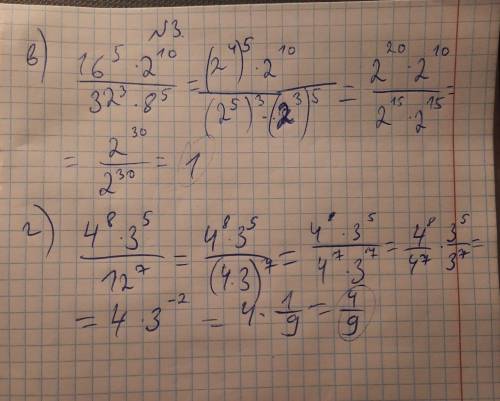 №3.
в) (16^5 · 2^10)/(32^3 · 8^5) = ((2^4)^5 · 2^10)/((2^5)^3 · (2^3)^5) = (2^20 · 2^10)/(2^15 · 2^15) =
= 2^30/2^30 = 1
г) (4^8 · 3^5)/12^7 = (4^8 · 3^5)/(4·3)^7 = (4^8 · 3^5)/(4^7 · 3^7) = 4^8/4^7 · 3^5/3^7 =
= 4 · 3^-2 = 4 · 1/9 = 4/9